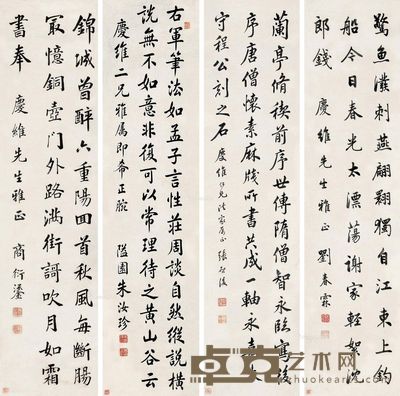 驚魚潑剌燕翩翾獨自江東上釣
船今日春光太漂蕩謝家輕絮沈
郎錢 慶維先生雅正 劉春霖
蘭亭脩稧前序世傳隋僧智永臨寫後
序唐僧懷素麻牋所書共成一軸永嘉太
守程公刻之石 慶維仁兄法家屬正 張啟後
右軍筆法如孟子言性莊周談自然縱說橫
說無不如意非復可以常理待之黃山谷云
慶維二兄雅屬即希正腕 隘園朱汝珍
錦城曾醉六重陽回首秋風每斷腸
冣憶銅壺門外路滿街謌吹月如霜
書奉 慶維先生雅正 商衍鎏
艺术网